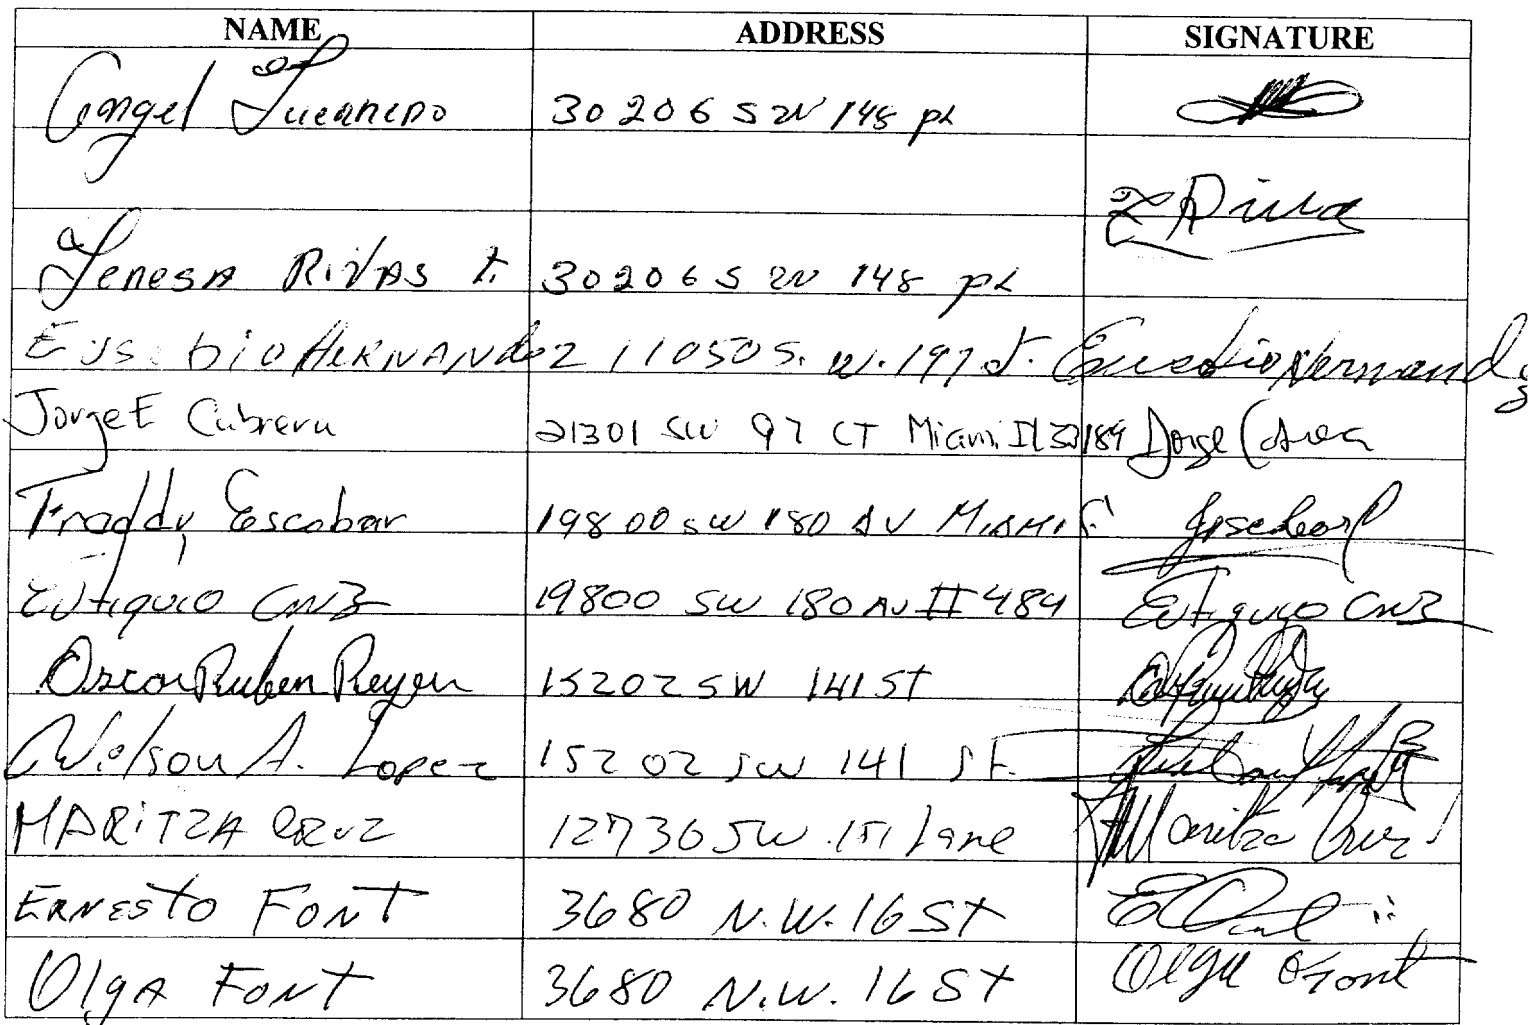 NAME ADDRESS SIGNATURE
Angel 30206 SW 148 PL
Teresa RIVAS t. 30206 SW 148 PL
EUSEbio HERNANdez 11050 S. W. 197 st. Eusebio Hernandez
Jorge E Cabrera 21301 SW 97 CT Miami Fl 33189 Jorge Cabrera
Freddy Escobar 19800 SW 180 AV MIAMI F.
Eutiquio CruZ 19800 SW 180 AV # 484 Eutiquio CruZ
Oscar Ruben Reyes 15202 SW 141 ST
Wilson A. Lopez 15202 SW 141 St.
MARITZA CRUZ 12730 SW 151 Lane Maritza Cruz
ERNESTO FONT 3680 N.W. 16 ST
OlgA FONT 3680 N.W. 16 ST Olga Font